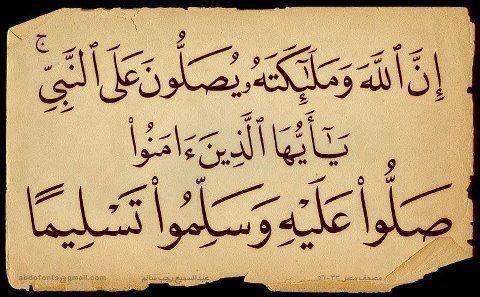 إِنَّ ٱللَّهَ وَمَلَٰٓئِكَتَهُۥ يُصَلُّونَ عَلَى ٱلنَّبِيِّۚ
يَٰٓأَيُّهَا ٱلَّذِينَ ءَامَنُوا۟
صَلُّوا۟ عَلَيْهِ وَسَلِّمُوا۟ تَسْلِيمًا
مصحف مصر ٣٣-٥٦ عبدالسميع رجب سالم abdofonts@gmail.com